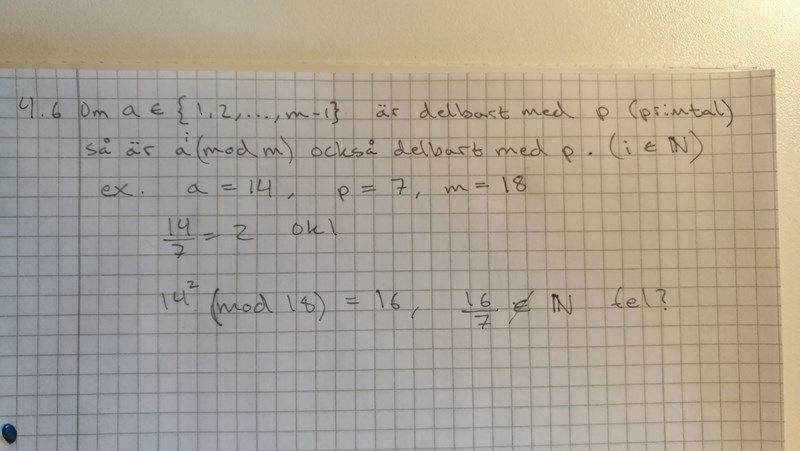 4.6 Om a ∈ {1,2,...,m-1} är delbart med p (primtal)
så är aⁱ(mod m) också delbart med p. (i ∈ ℕ)
ex. a = 14, p = 7, m = 18
14/7 = 2 ok!
14² (mod 18) = 16, 16/7 ∉ ℕ fel?